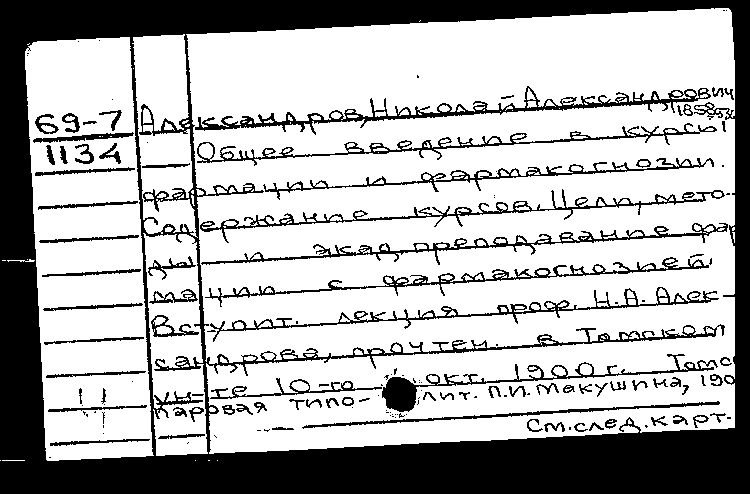 69-7 Александров, Николай Александрович
1134 Общее введение в курсы
фармации и фармакогнозии.
Содержание курсов. Цели, мето-
ды и экад. преподавание фар
мации с фармакогнозией.
Вступит. лекция проф. Н.А. Алек-
сандрова, прочтен. в Томском
ун-те 10-го окт. 1900 г. Томс
паровая типо- лит. П.И. Макушина, 190
См. след. карт.